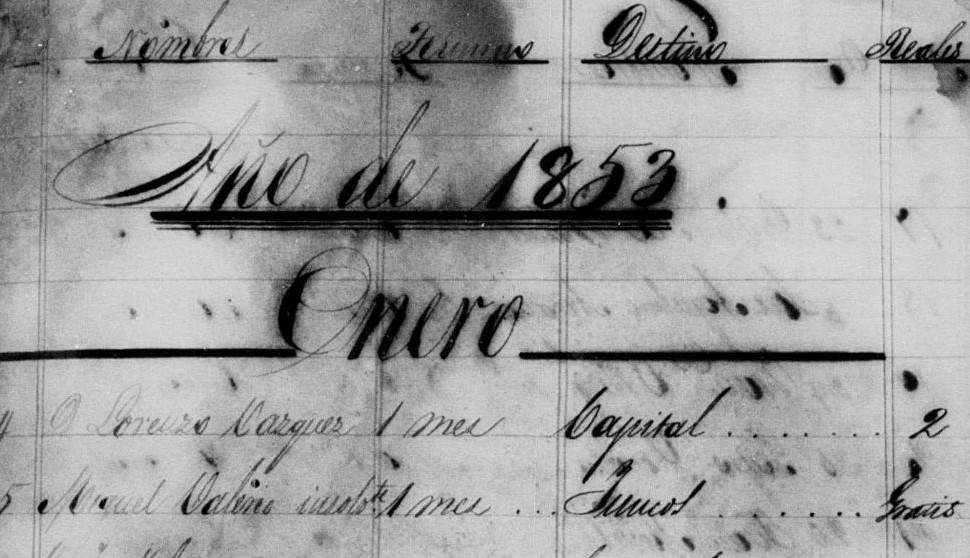 Nombres Termino Destino Reales
Año de 1853.
Enero
4 D Lorenzo Vazquez 1 mes Capital ........ 2
5 Miguel Valerio insolvte 1 mes ... Juncos ...... Gratis